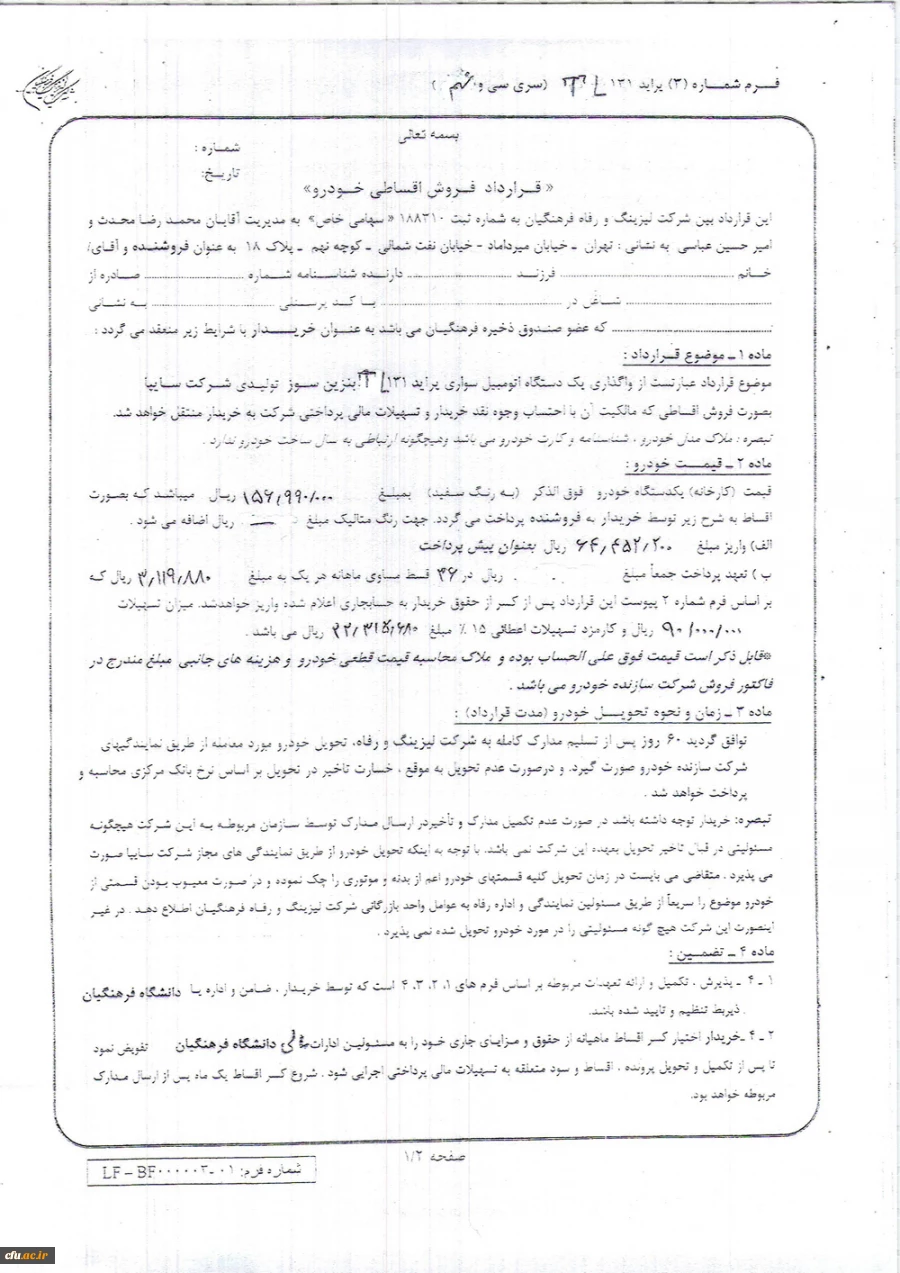 فـرم شمـاره (۳) پراید ۱۳۱ TL (سری سی و ششم)
بسمه تعالی
شمـاره :
تاریـخ:
« قـرارداد فـروش اقساطی خـودرو»
این قرارداد بین شرکت لیزینگ و رفاه فرهنگیان به شماره ثبت ۱۸۸۳۱۰ « سهامی خاص» به مدیریت آقایان محمد رضا محدث و
امیر حسین عباسی به نشانی : تهران ـ خیابان میرداماد - خیابان نفت شمالی ـ کوچه نهم ـ پلاک ۱۸ به عنوان فروشنده و آقای/
خـانم ........................ فرزنـد ........................ دارنـده شناسـنامه شـماره ........................ صـادره از
........................ شـاغل در ........................ بـا کـد پرسـنلی ........................ بـه نشـانی
........................ که عضو صندوق ذخیره فرهنگیان می باشد به عنـوان خریـــدار با شرایط زیر منعقد می گردد :
ماده ۱ ـ موضوع قـرارداد :
موضوع قرارداد عبارتست از واگذاری یک دستگاه اتومبیل سواری پراید ۱۳۱ TL بنزین سـوز تولیـدی شـرکت سـایپا
بصورت فروش اقساطی که مالکیت آن با احتساب وجوه نقد خریدار و تسهیلات مالی پرداختی شرکت به خریدار منتقل خواهد شد.
تبصره : ملاک مدل خودرو ، شناسنامه و کارت خودرو می باشد وهیچگونه ارتباطی به سال ساخت خودرو ندارد .
ماده ۲ ـ قیمـت خودرو :
قیمت (کارخانه) یکدستگاه خودرو فوق الذکر (بـه رنـگ سـفید) بمبلـغ ۱۵۶٫۹۹۰٫۰۰۰ ریـال میباشد کـه بصورت
اقساط به شرح زیر توسط خریدار به فروشنده پرداخت می گردد. جهت رنگ متالیک مبلغ ریال اضافه می شود .
الف) واریز مبلغ ۶۴٫۴۵۲٫۲۰۰ ریال بعنوان پیش پرداخت
ب ) تعهد پرداخت جمعاً مبلغ ریال در ۳۶ قسط مساوی ماهانه هر یک به مبلغ ۳٫۱۱۹٫۸۸۰ ریال کـه
بر اساس فرم شماره ۲ پیوست این قرارداد پس از کسر از حقوق خریدار به حسابجاری اعلام شده واریز خواهدشد. میزان تسهیلات
۹۰٫۰۰۰٫۰۰۰ ریال و کارمزد تسهیلات اعطائی ۱۵ ٪ مبلغ ۲۲٫۳۱۵٫۶۸۰ ریال می باشد .
*قابل ذکر است قیمت فوق علی الحساب بوده و ملاک محاسبه قیمت قطعی خودرو و هزینه های جانبی مبلغ مندرج در
فاکتور فروش شرکت سازنده خودرو می باشد .
ماده ۳ ـ زمان و نحوه تحویـل خودرو (مدت قرارداد) :
توافق گردید ۶۰ روز پس از تسلیم مدارک کامله به شرکت لیزینگ و رفاه، تحویل خودرو مورد معامله از طریق نمایندگیهای
شرکت سازنده خودرو صورت گیرد. و درصورت عدم تحویل به موقع ، خسارت تاخیر در تحویل بر اساس نرخ بانک مرکزی محاسبه و
پرداخت خواهد شد .
تبصره: خریدار توجه داشته باشد در صورت عدم تکمیل مدارک و تأخیردر ارسال مـدارک توسـط سـازمان مربوطـه بـه ایـن شـرکت هیچگونـه
مسئولیتی در قبال تاخیر تحویل بعهده این شرکت نمی باشد. با توجه به اینکه تحویل خودرو از طریق نمایندگی های مجاز شرکت سـایپا صورت
می پذیرد ، متقاضی می بایست در زمان تحویل کلیه قسمتهای خودرو اعم از بدنه و موتوری را چک نموده و در صورت معیـوب بـودن قسمتی از
خودرو موضوع را سریعاً از طریق مسئولین نمایندگی و اداره رفاه به عوامل واحد بازرگانی شرکت لیزینگ و رفـاه فرهنگیـان اطلاع دهـد . در غیـر
اینصورت این شرکت هیچ گونه مسئولیتی را در مورد خودرو تحویل شده نمی پذیرد .
ماده ۴ ـ تضمـین :
۱ ـ ۴ ـ پذیرش ، تکمیل و ارائه تعهدات مربوطه بر اساس فرم های ۱، ۲، ۳، ۴ است که توسط خریـدار ، ضـامن و اداره یـا دانشگاه فرهنگیان
ذیربط تنظیم و تایید شده باشد.
۲ ـ ۴ ـخریدار اختیار کسر اقساط ماهیانه از حقوق و مـزایـای جاری خـود را به مسـئولین ادارات مالی دانشگاه فرهنگیان تفویض نمود
تا پس از تکمیل و تحویل پرونده ، اقساط و سود متعلقه به تسهیلات مالی پرداختی اجرایی شود . شروع کسر اقساط یک ماه پس از ارسال مدارک
مربوطه خواهد بود.
صفحه ۱/۲
شماره فرم: LF - BF۰۰۰۰۰۳-۰۱
cfu.ac.ir